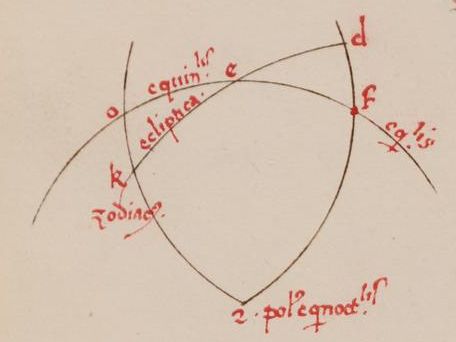 d
e
equin.lis
o
ecliptica.
f
k
eq.lis
zodiac9.
2. pol9 eqnoct.lis